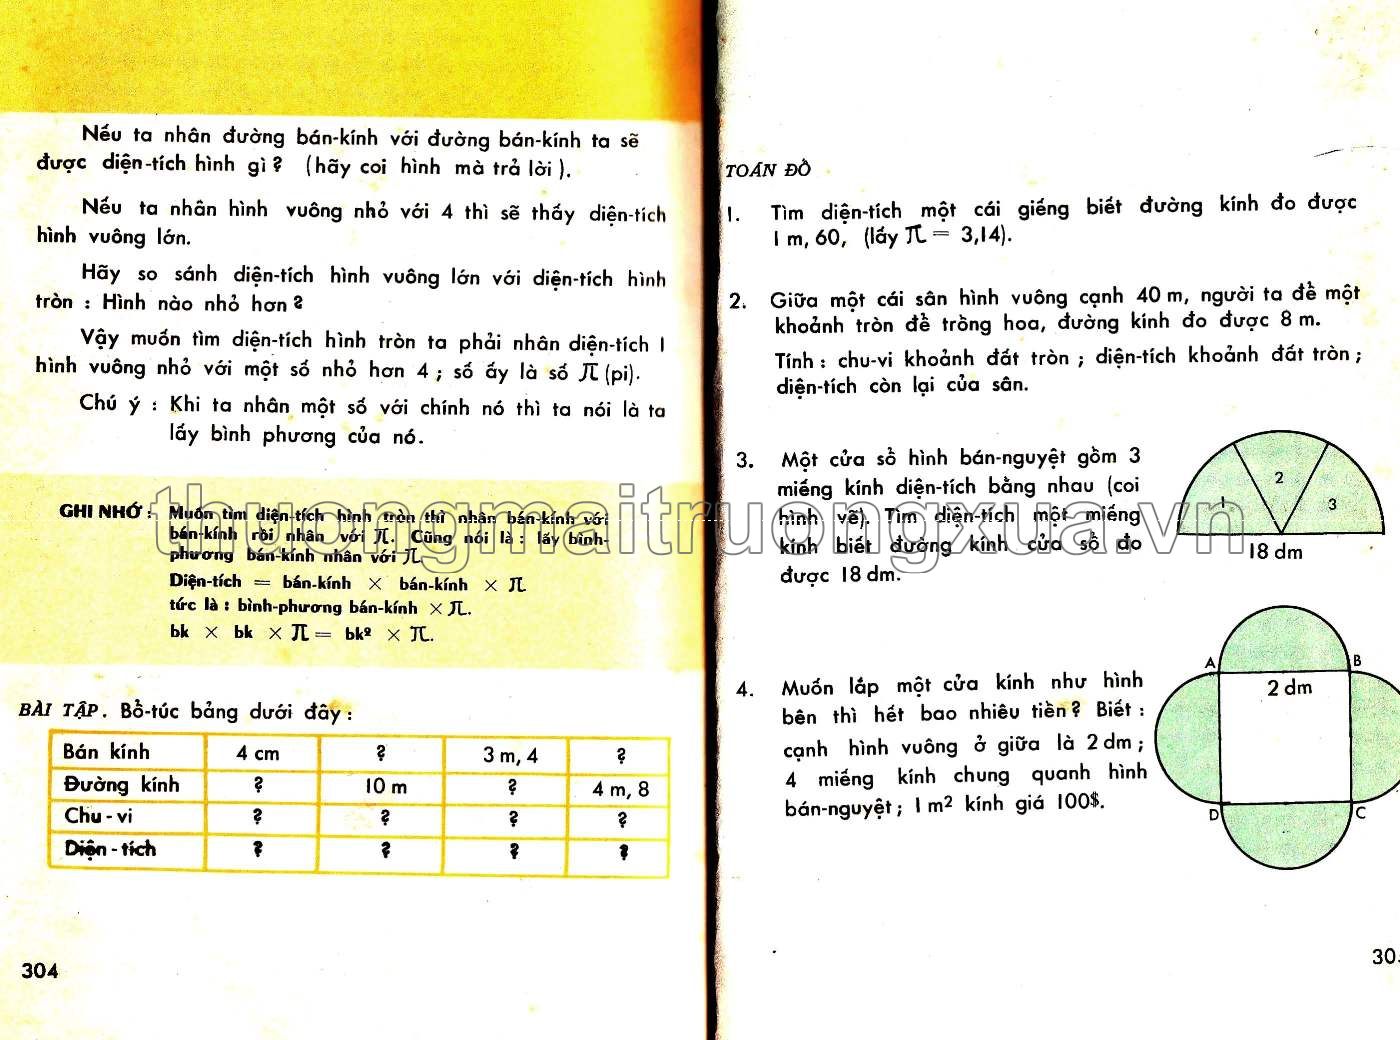 Nếu ta nhân đường bán-kính với đường bán-kính ta sẽ
được diện-tích hình gì ? (hãy coi hình mà trả lời ).
Nếu ta nhân hình vuông nhỏ với 4 thì sẽ thấy diện-tích
hình vuông lớn.
Hãy so sánh diện-tích hình vuông lớn với diện-tích hình
tròn : Hình nào nhỏ hơn ?
Vậy muốn tìm diện-tích hình tròn ta phải nhân diện-tích 1
hình vuông nhỏ với một số nhỏ hơn 4 ; số ấy là số π (pi).
Chú ý : Khi ta nhân một số với chính nó thì ta nói là ta
lấy bình phương của nó.
GHI NHỚ : Muốn tìm diện-tích hình tròn thì nhân bán-kính với
bán-kính rồi nhân với π. Cũng nói là : lấy bình-
phương bán-kính nhân với π
Diện-tích = bán-kính × bán-kính × π
tức là : bình-phương bán-kính × π.
bk × bk × π = bk² × π.
BÀI TẬP. Bổ-túc bảng dưới đây :
Bán kính 4 cm ? 3 m, 4 ?
Đường kính ? 10 m ? 4 m, 8
Chu - vi ? ? ? ?
Diện - tích ? ? ? ?
304
TOÁN ĐỐ
1. Tìm diện-tích một cái giếng biết đường kính đo được
1 m, 60, (lấy π = 3,14).
2. Giữa một cái sân hình vuông cạnh 40 m, người ta để một
khoảnh tròn để trồng hoa, đường kính đo được 8 m.
Tính : chu-vi khoảnh đất tròn ; diện-tích khoảnh đất tròn ;
diện-tích còn lại của sân.
3. Một cửa sổ hình bán-nguyệt gồm 3
miếng kính diện-tích bằng nhau (coi
hình vẽ). Tìm diện-tích một miếng
kính biết đường kính cửa sổ đo
được 18 dm.
1 2 3
18 dm
4. Muốn lắp một cửa kính như hình
bên thì hết bao nhiêu tiền ? Biết :
cạnh hình vuông ở giữa là 2 dm ;
4 miếng kính chung quanh hình
bán-nguyệt ; 1 m2 kính giá 100$.
A B
2 dm
D C
30
thuongmaitruongxua.vn